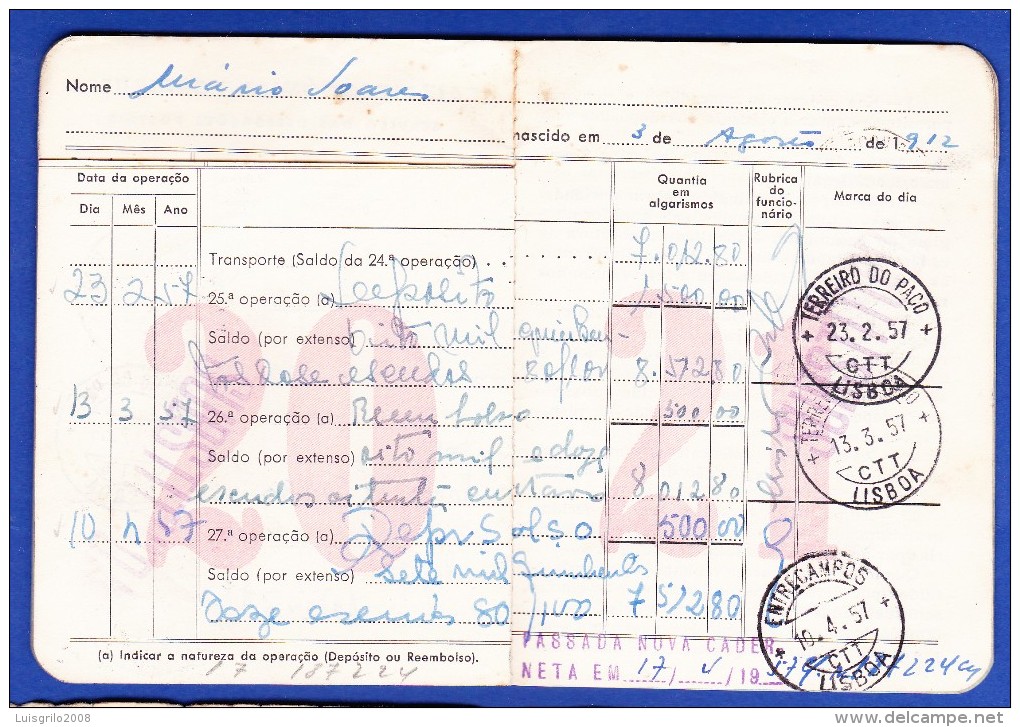 Nome Mário Soares
nascido em 3 de Agosto de 1912
Data da operação
Dia Mês Ano
Quantia em algarismos
Rubrica do funcionário
Marca do dia
Transporte (Saldo da 24.ª operação) 7.012.80
23 2 57 25.ª operação (a) Depósito 1.500 00
Saldo (por extenso) oito mil quinhen-
tos doze escudos 8.512.80
13 3 57 26.ª operação (a) Reembolso 500 00
Saldo (por extenso) oito mil e doze
escudos oitenta centavos 8 012.80
10 4 57 27.ª operação (a) 500 00
Saldo (por extenso) Sete mil quinhentos
doze escudos 80 7 512 80
(a) Indicar a natureza da operação (Depósito ou Reembolso).
17 187224
PASSADA NOVA CADER
NETA EM 17/4/1957 187224
20 21
TERREIRO DO PAÇO
23.2.57
CTT
LISBOA
TERREIRO DO PAÇO
13.3.57
CTT
LISBOA
ENTRECAMPOS
10.4.57
CTT
LISBOA
Luisgrilo2008
delcampe.net